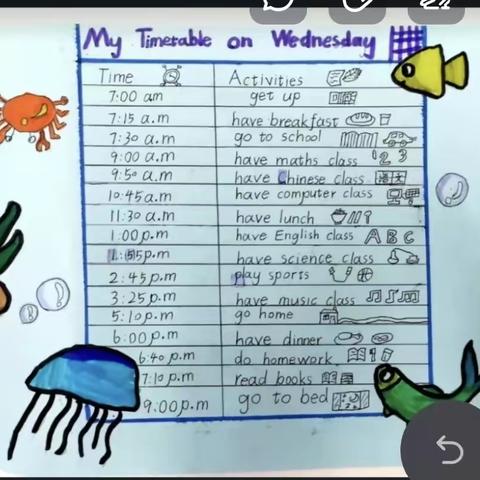 My Timetable on Wednesday
Time Activities
7:00 am get up
7:15 a.m have breakfast
7:30 a.m go to school
9:00 a.m have maths class 1 2 3
9:50 a.m have Chinese class
10:45 a.m have computer class
11:30 a.m have lunch
1:00 p.m have English class A B C
1:55 p.m have science class
2:45 p.m play sports
3:25 p.m have music class
5:10 p.m go home
6:00 p.m have dinner
6:40 p.m do homework
7:10 p.m read books
9:00 p.m go to bed